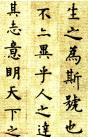 生之為斯號也
不上異乎人之達
其志意明天下之